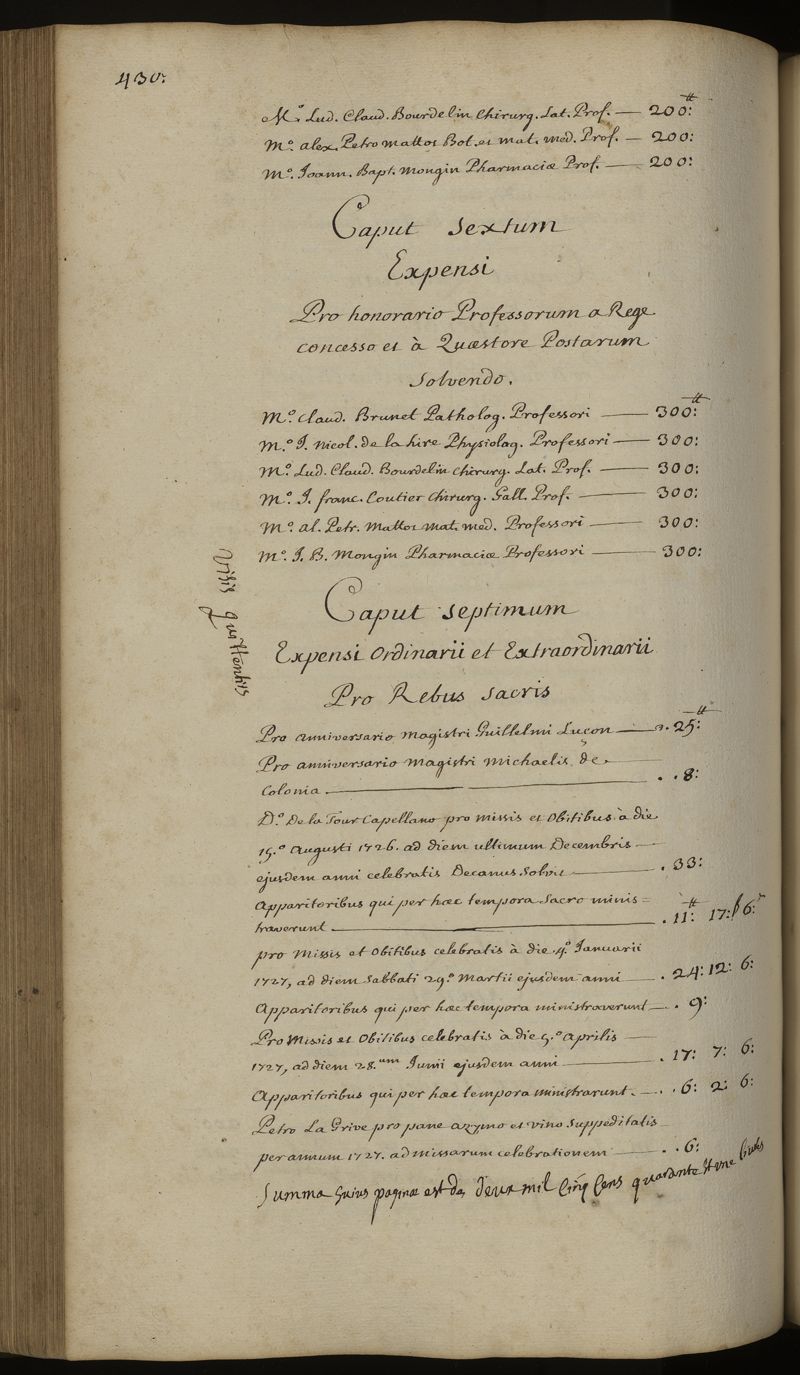 430:
M.º Lud. Claud. Bourdelin Chirurg. Lat. Prof. — 200:
Mº. alex. Petro Mattot Bot. et mat. med. Prof. — 200:
Mº. Joann. Bapt. Mongin Pharmaciæ Prof. — 200:
Caput Sextum
Expensi
Pro honorario Professorum a Rege
concesso et à Quæstore Postarum
Solvendo.
M.º Claud. Brunet Patholog. Professori — 300:
M.º J. Nicol. de la hire Physiolog. Professori — 300:
Mº. Lud. Claud. Bourdelin Chirurg. Lat. Prof. — 300:
Mº. J. franc. Coutier Chirurg. Gall. Prof. — 300:
Mº. al. Petr. Mattot mat. med. Professori — 300:
Mº. J. B. Mongin Pharmaciæ Professori — 300:
Visis quittentiis
Caput Septimum
Expensi Ordinarii et Extraordinarii
Pro Rebus Sacris
Pro anniversario Magistri Guillelmi Luçon — 25:
Pro anniversario Magistri Michaelis de
Colonia — 8:
D.º De la Tour Capellano pro missis et Obitibus à die
15.º Augusti 1726. ad diem ultimum Decembris
ejusdem anni celebratis Decanus Solvit — 33:
Apparitoribus qui per hæc tempora Sacro minis=
traverunt — 11: 17: 6:
pro Missis et Obitibus celebratis à die 4.º Januarii
1727, ad diem Sabbati 29.º Martii ejusdem anni — 24: 12: 6:
Apparitoribus qui per hæc tempora ministraverunt — 9:
Pro Missis et Obitibus celebratis à die 5.º Aprilis
1727, ad diem 28.um Junii ejusdem anni — 17: 7: 6:
Apparitoribus qui per hæc tempora ministrarunt. — 6: 2: 6:
Petro La Grive pro pane azymo et vino Suppeditatis
per annum 1727. ad missarum celebrationem — 6:
Summa huius paginæ est de deux mil Cinq Cens quarante et une